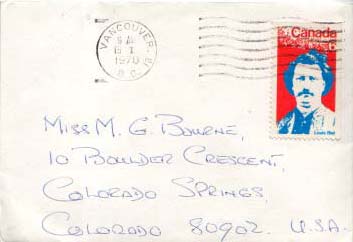 VANCOUVER,
1970
B.C.
Canada
6
Louis Riel
MISS M. G. BOURNE,
10 BOULDER CRESCENT,
COLORADO SPRINGS,
COLORADO 80902. U.S.A.